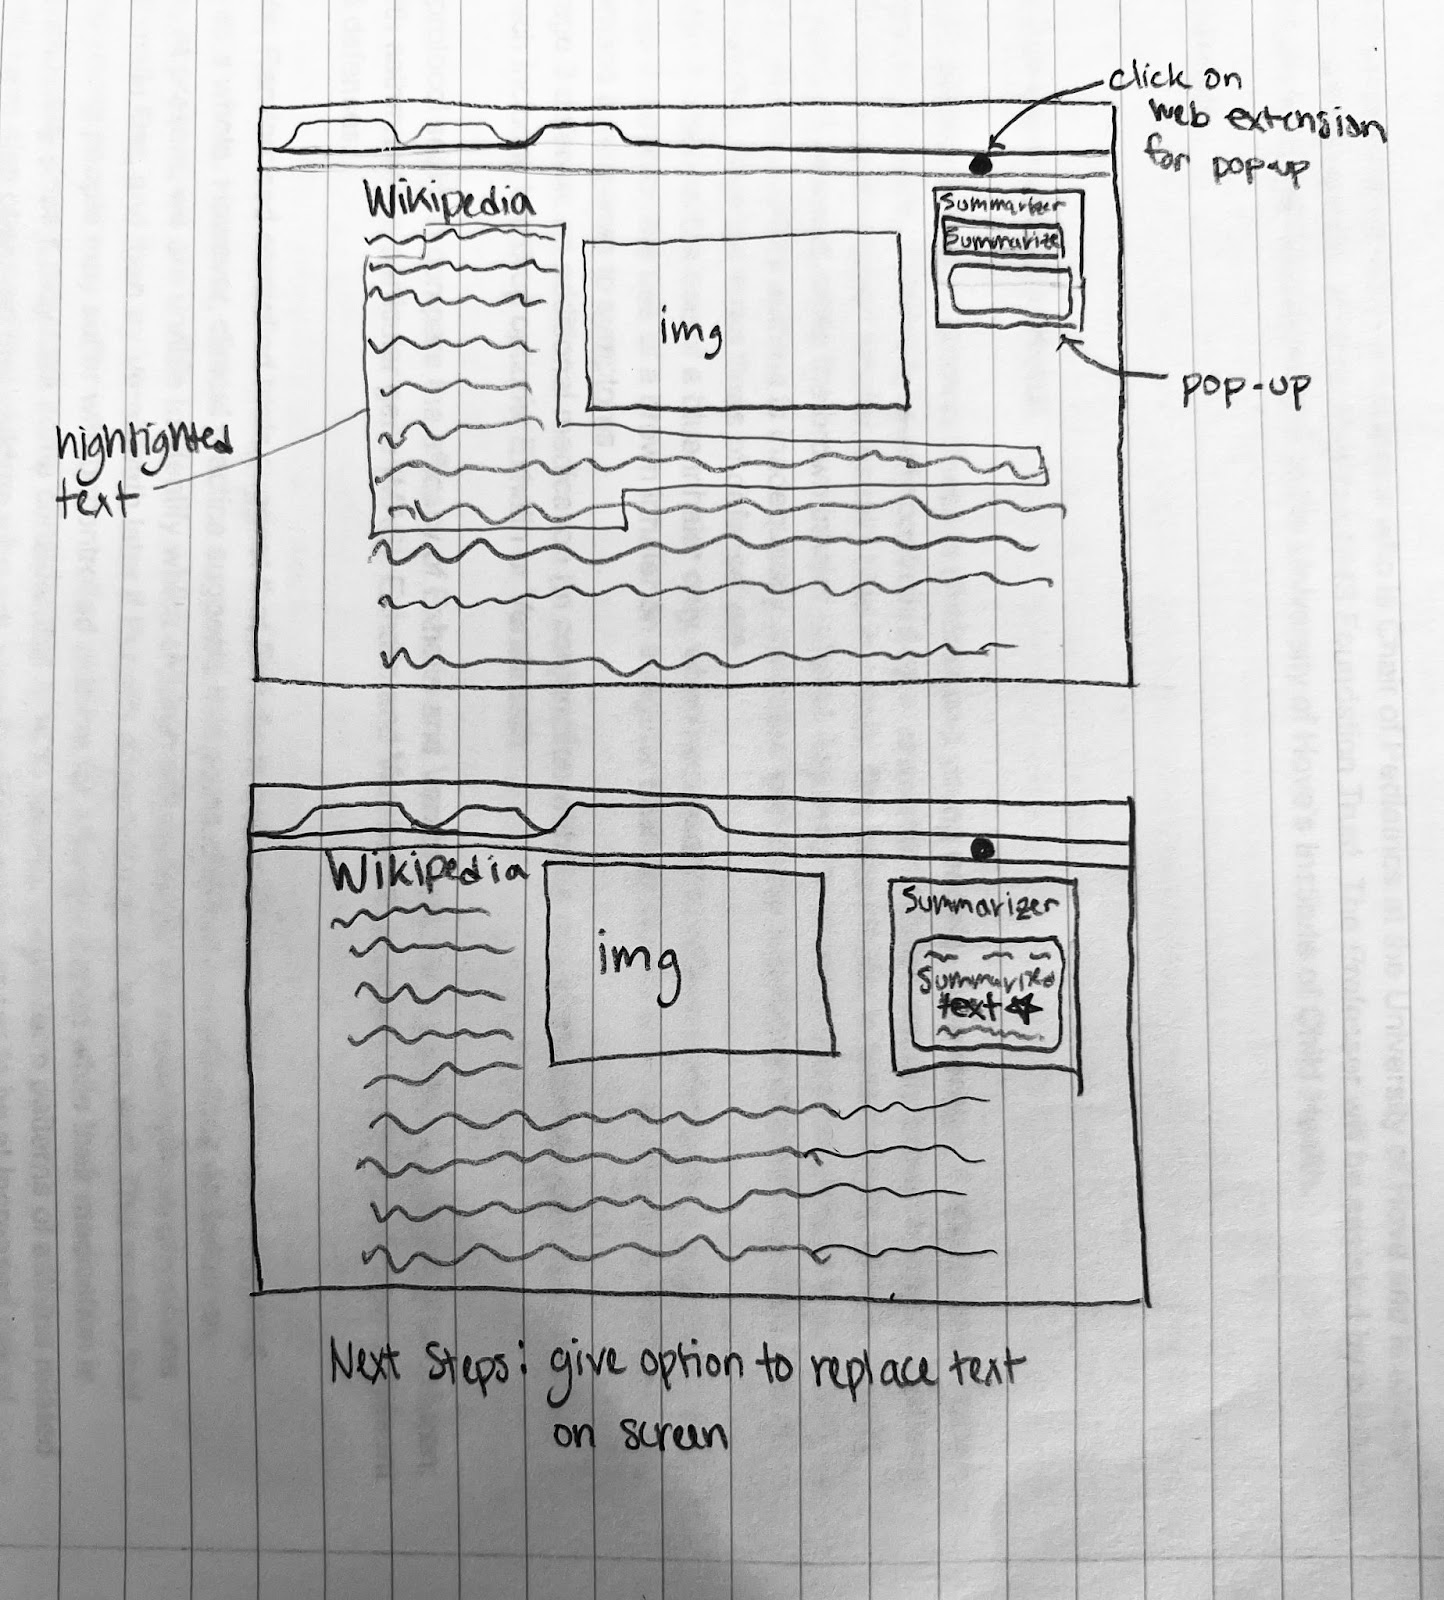 click on
web extension
for pop-up
Wikipedia
Summarizer
Summarize
img
pop-up
highlighted
text
Wikipedia
img
Summarizer
Summarized
text
Next Steps: give option to replace text
on screen